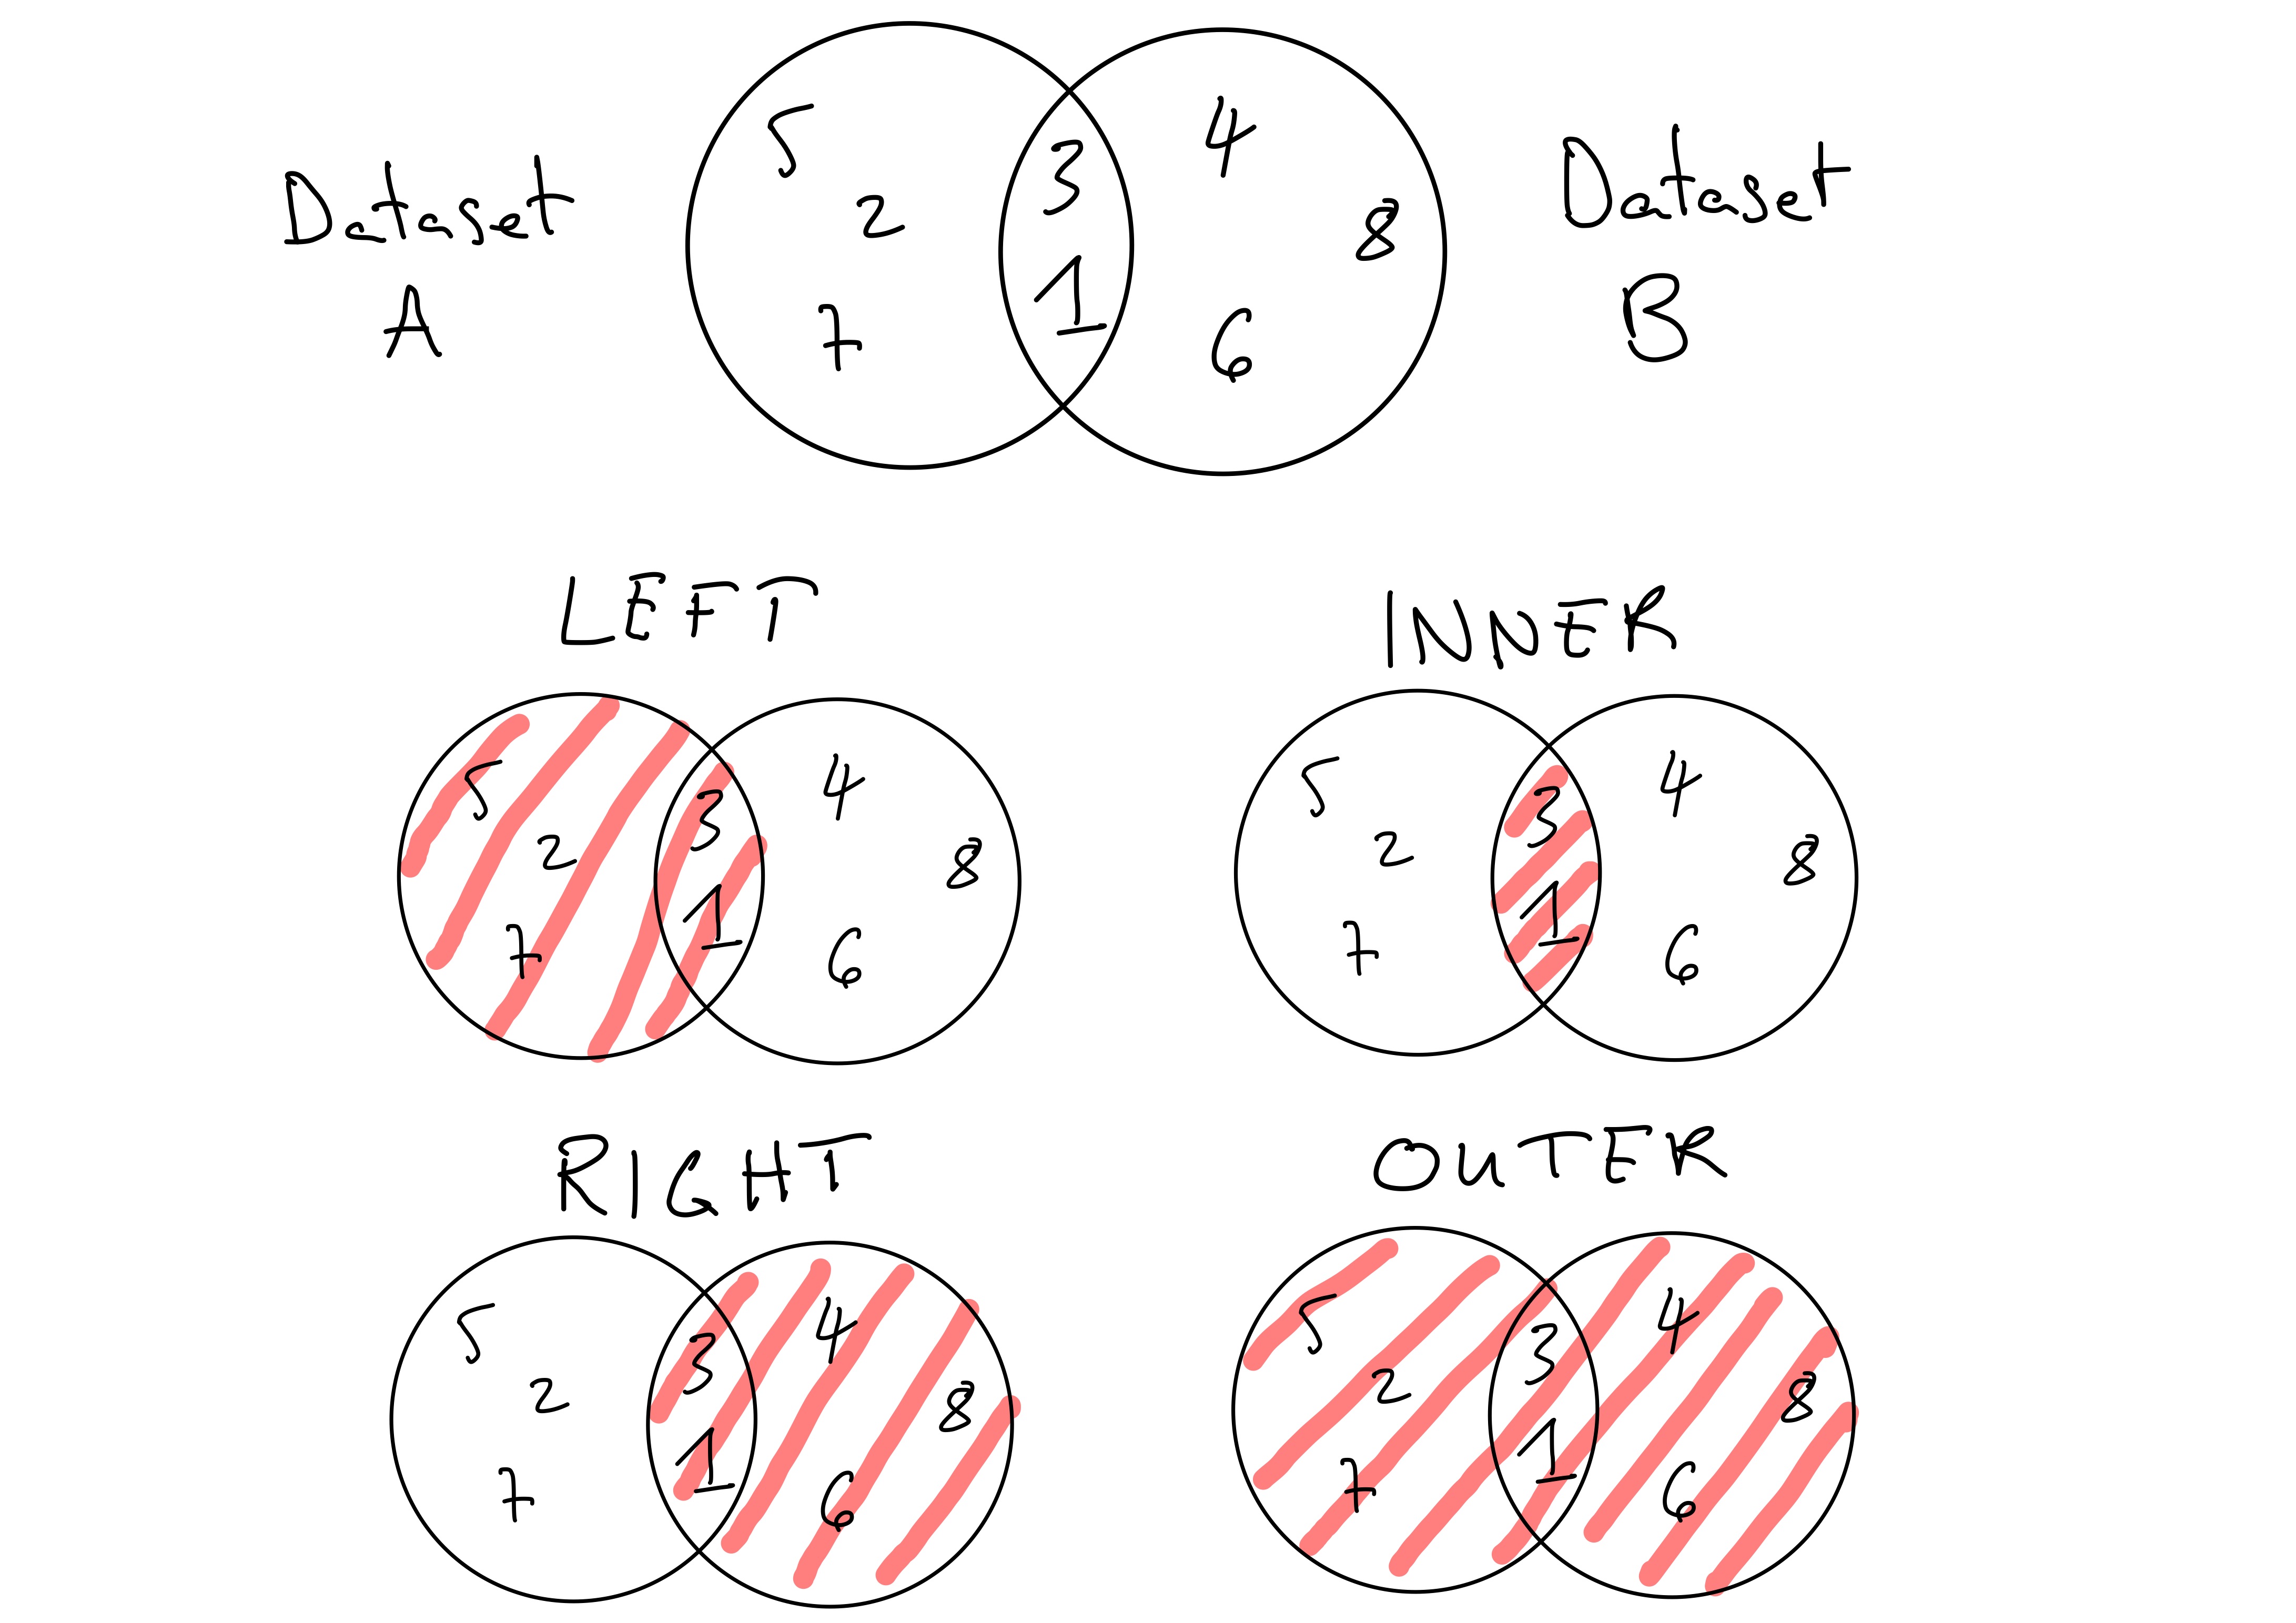 Dataset
A
5
2
7
3
1
4
8
6
Dataset
B
LEFT
5
2
7
3
1
4
8
6
INNER
5
2
7
3
1
4
8
6
RIGHT
5
2
7
3
1
4
8
6
OUTER
5
2
7
3
1
4
8
6